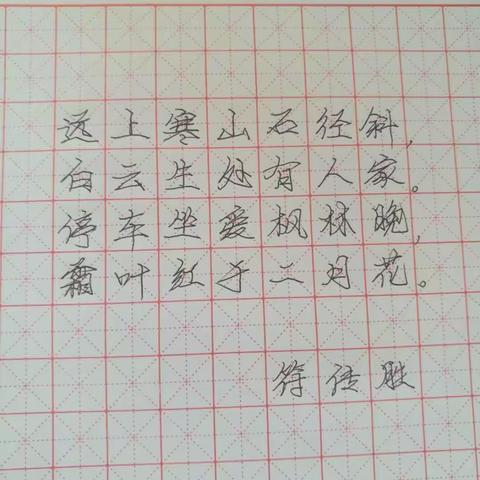 远上寒山石径斜,
白云生处有人家。
停车坐爱枫林晚,
霜叶红于二月花。
符传胜